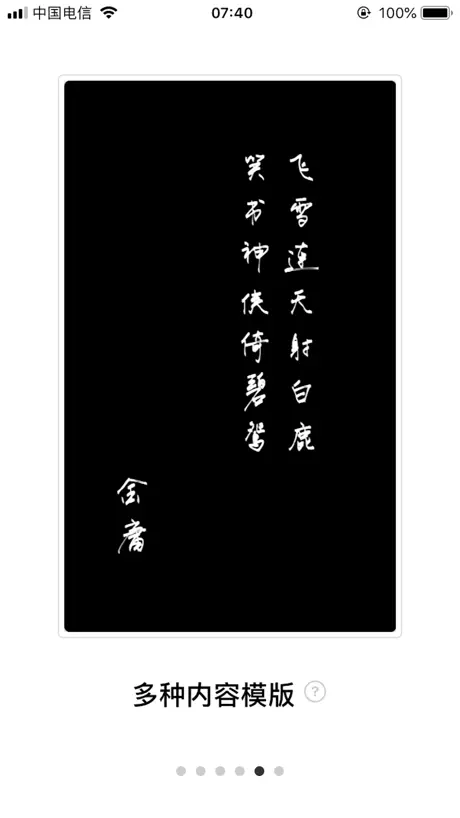 中国电信
07:40
100%
飞雪连天射白鹿
笑书神侠倚碧鸳
金庸
多种内容模版
?